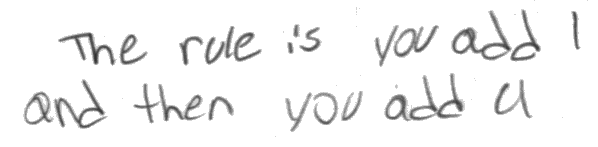 The rule is you add 1
and then you add 4